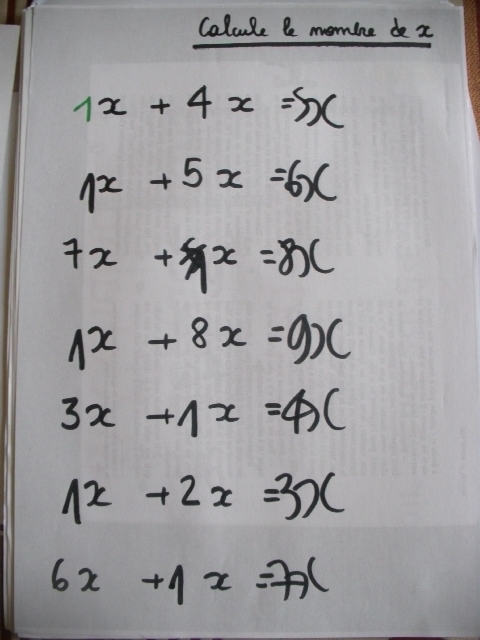 Calcule le nombre de x
1x + 4x = 5x
1x + 5x = 6x
7x + 1x = 8x
1x + 8x = 9x
3x + 1x = 4x
1x + 2x = 3x
6x + 1x = 7x